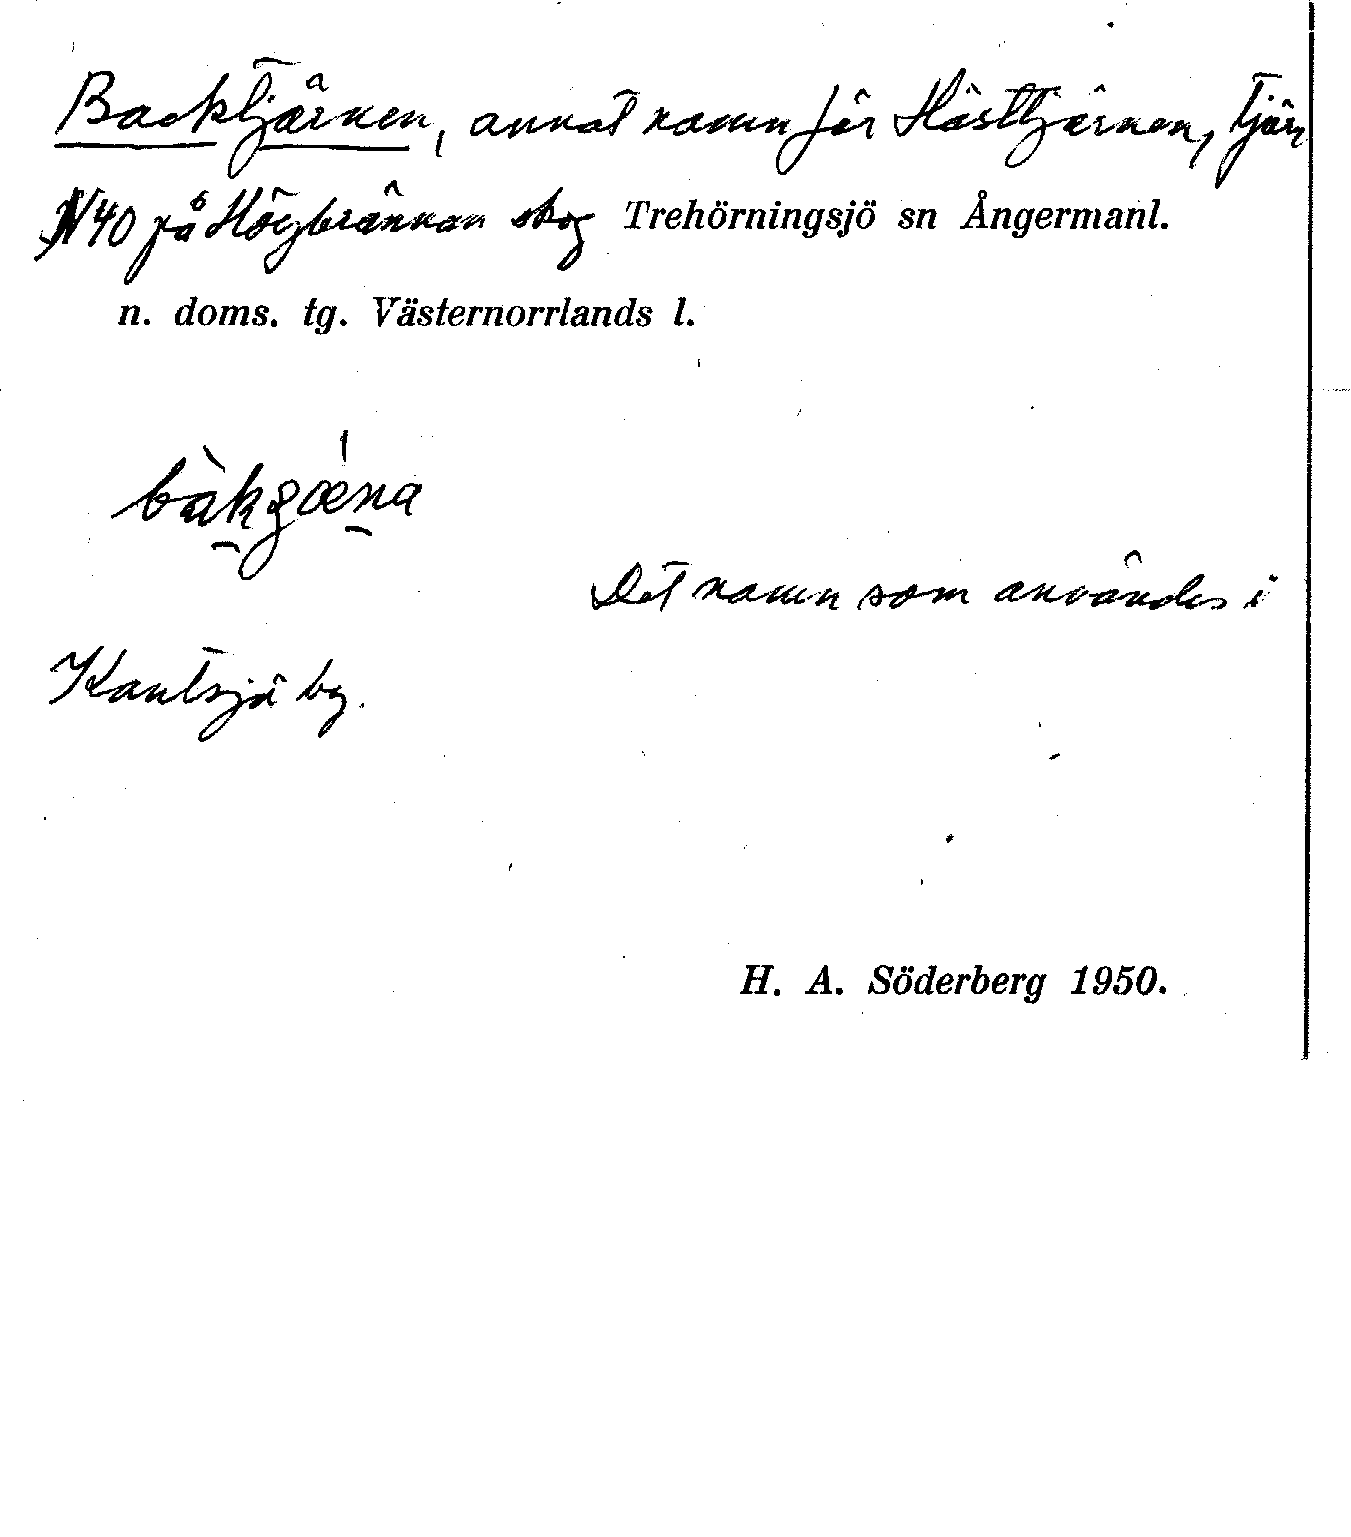 Backtjärnen, annat namn för Hästtjärnen, tjärn
N40 på Högbrännan skog Trehörningsjö sn Ångermanl.
n. doms. tg. Västernorrlands l.
Det namn som användes i
Kantsjö by.
H. A. Söderberg 1950.